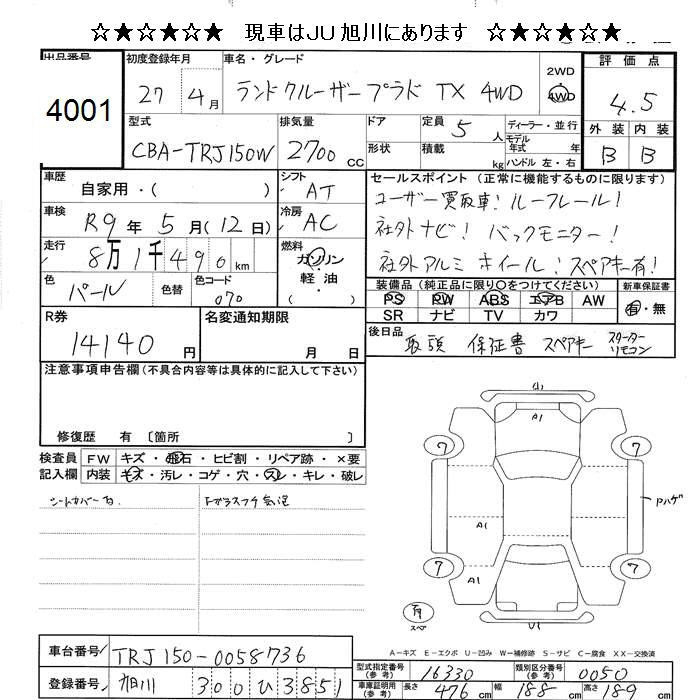 ☆★☆★☆★ 現車はJU旭川にあります ☆★☆★☆★
出品番号 4001
初度登録年月 27 4月
車名・グレード ランドクルーザープラド TX 4WD
2WD 4WD
評価点 4.5
外装 内装
B B
型式 CBA-TRJ150W
排気量 2700 CC
ドア 形状
定員 5人
積載 kg
ディーラー・並行
モデル年式 年式
ハンドル 左・右
車歴 自家用・( )
シフト AT
車検 R9年5月(12日)
冷房 AC
走行 8万1千490km
燃料 ガソリン・軽油
色 パール 色替 色コード 070
セールスポイント (正常に機能するものに限ります)
ユーザー買取車! ルーフレール!
社外ナビ! バックモニター!
社外アルミホイール! スペアキー有!
装備品 (純正品に限り○をつけてください)
PS PW ABS エアB AW
SR ナビ TV カワ
新車保証書 有・無
R券 14140円
名変通知期限 月 日
後日品 取説 保証書 スペアキー スターターリモコン
注意事項申告欄(不具合内容等は具体的に記入して下さい)
修復歴 有 〔箇所 〕
検査員記入欄
FW キズ・飛石・ヒビ割・リペア跡・×要
内装 キズ・汚レ・コゲ・穴・スレ・キレ・破レ
シートカバー有
Fガラスフチ気泡
A1
7
7
Pハゲ
A1
7
7
A1
有
スペア
U1
A-キズ E-エクボ U-凹み W-補修跡 S-サビ C-腐食 XX-交換済
車台番号 TRJ150-0058736
登録番号 旭川 300 ひ 3851
型式指定番号(参考) 16330
類別区分番号(参考) 0050
車庫証明用(参考) 長さ 476cm 幅 188cm 高さ 189cm